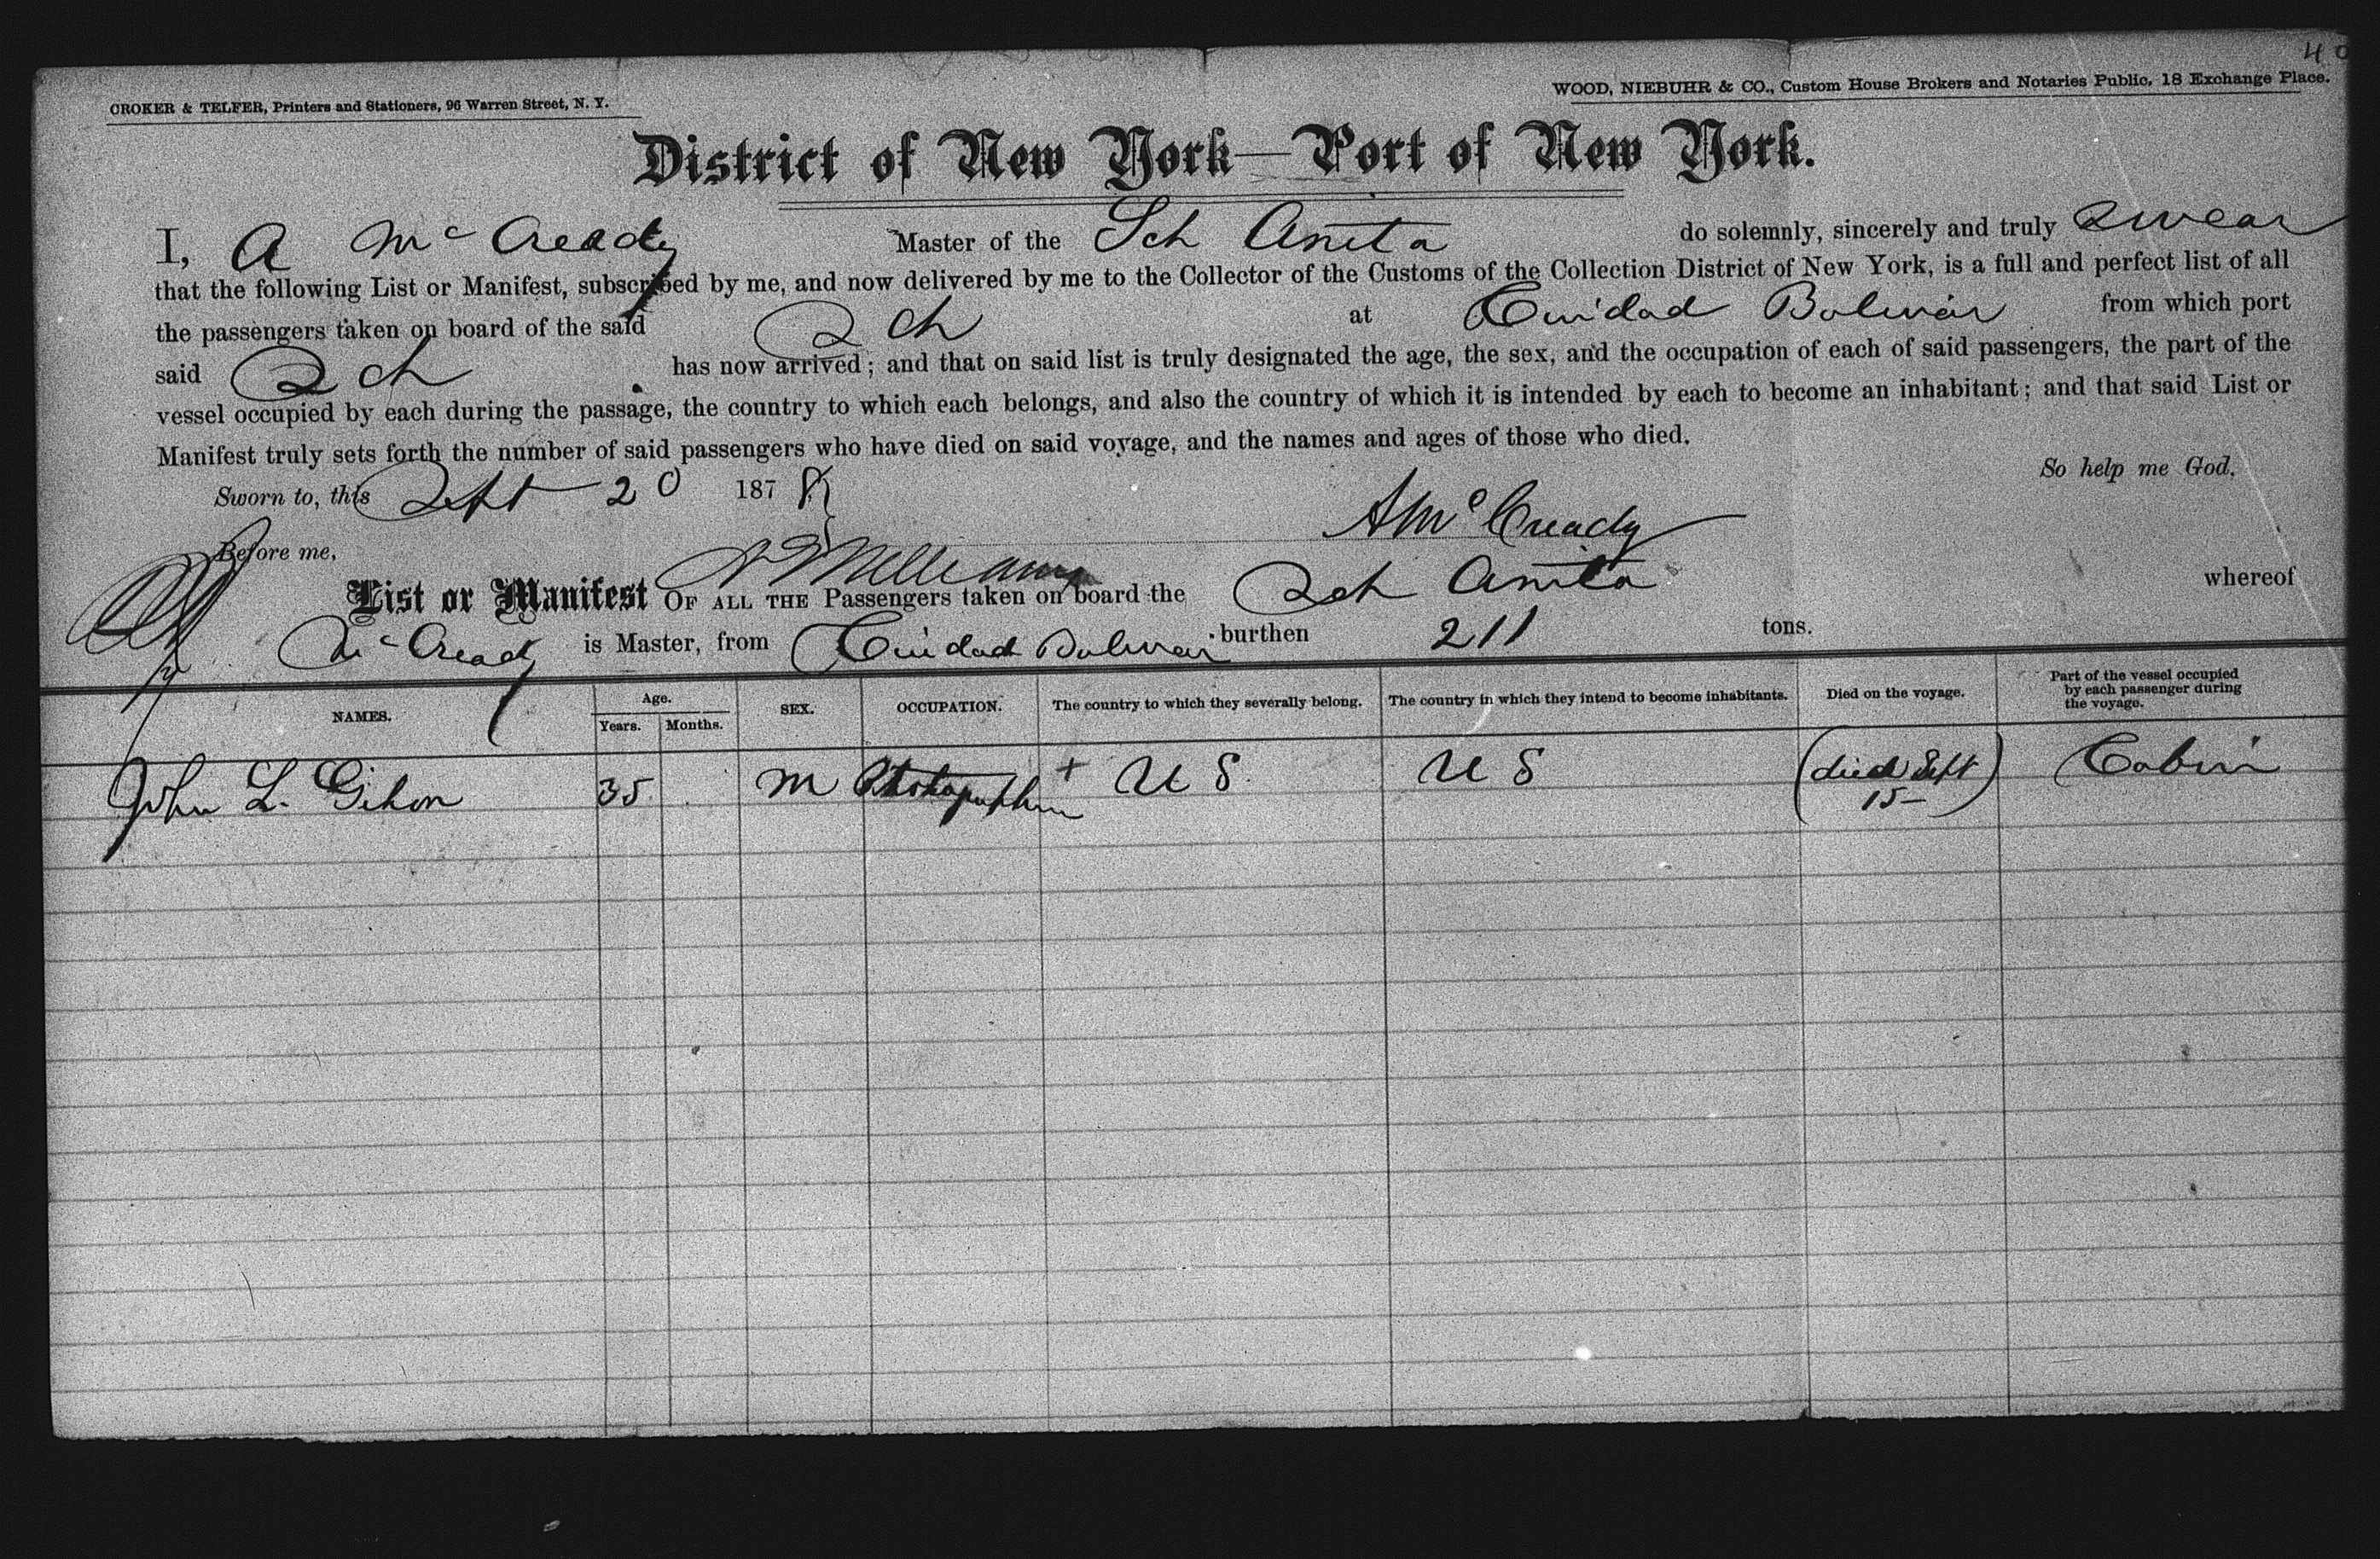 40
CROKER & TELFER, Printers and Stationers, 96 Warren Street, N. Y.
WOOD, NIEBUHR & CO., Custom House Brokers and Notaries Public, 18 Exchange Place.
District of New York—Port of New York.
I, A McCready Master of the Sch Anita do solemnly, sincerely and truly swear
that the following List or Manifest, subscribed by me, and now delivered by me to the Collector of the Customs of the Collection District of New York, is a full and perfect list of all
the passengers taken on board of the said Sch at Cuidad Bolivar from which port
said Sch has now arrived; and that on said list is truly designated the age, the sex, and the occupation of each of said passengers, the part of the
vessel occupied by each during the passage, the country to which each belongs, and also the country of which it is intended by each to become an inhabitant; and that said List or
Manifest truly sets forth the number of said passengers who have died on said voyage, and the names and ages of those who died.
So help me God.
Sworn to, this Sept 20 1878
A McCready
Before me,
Williams
List or Manifest OF ALL THE Passengers taken on board the Sch Anita whereof
McCready is Master, from Cuidad Bolivar burthen 211 tons.
NAMES. Age. Years. Months. SEX. OCCUPATION. The country to which they severally belong. The country in which they intend to become inhabitants. Died on the voyage. Part of the vessel occupied by each passenger during the voyage.
John L. Gihon 35 M Photographer + U S U S (died Sept 15—) Cabin